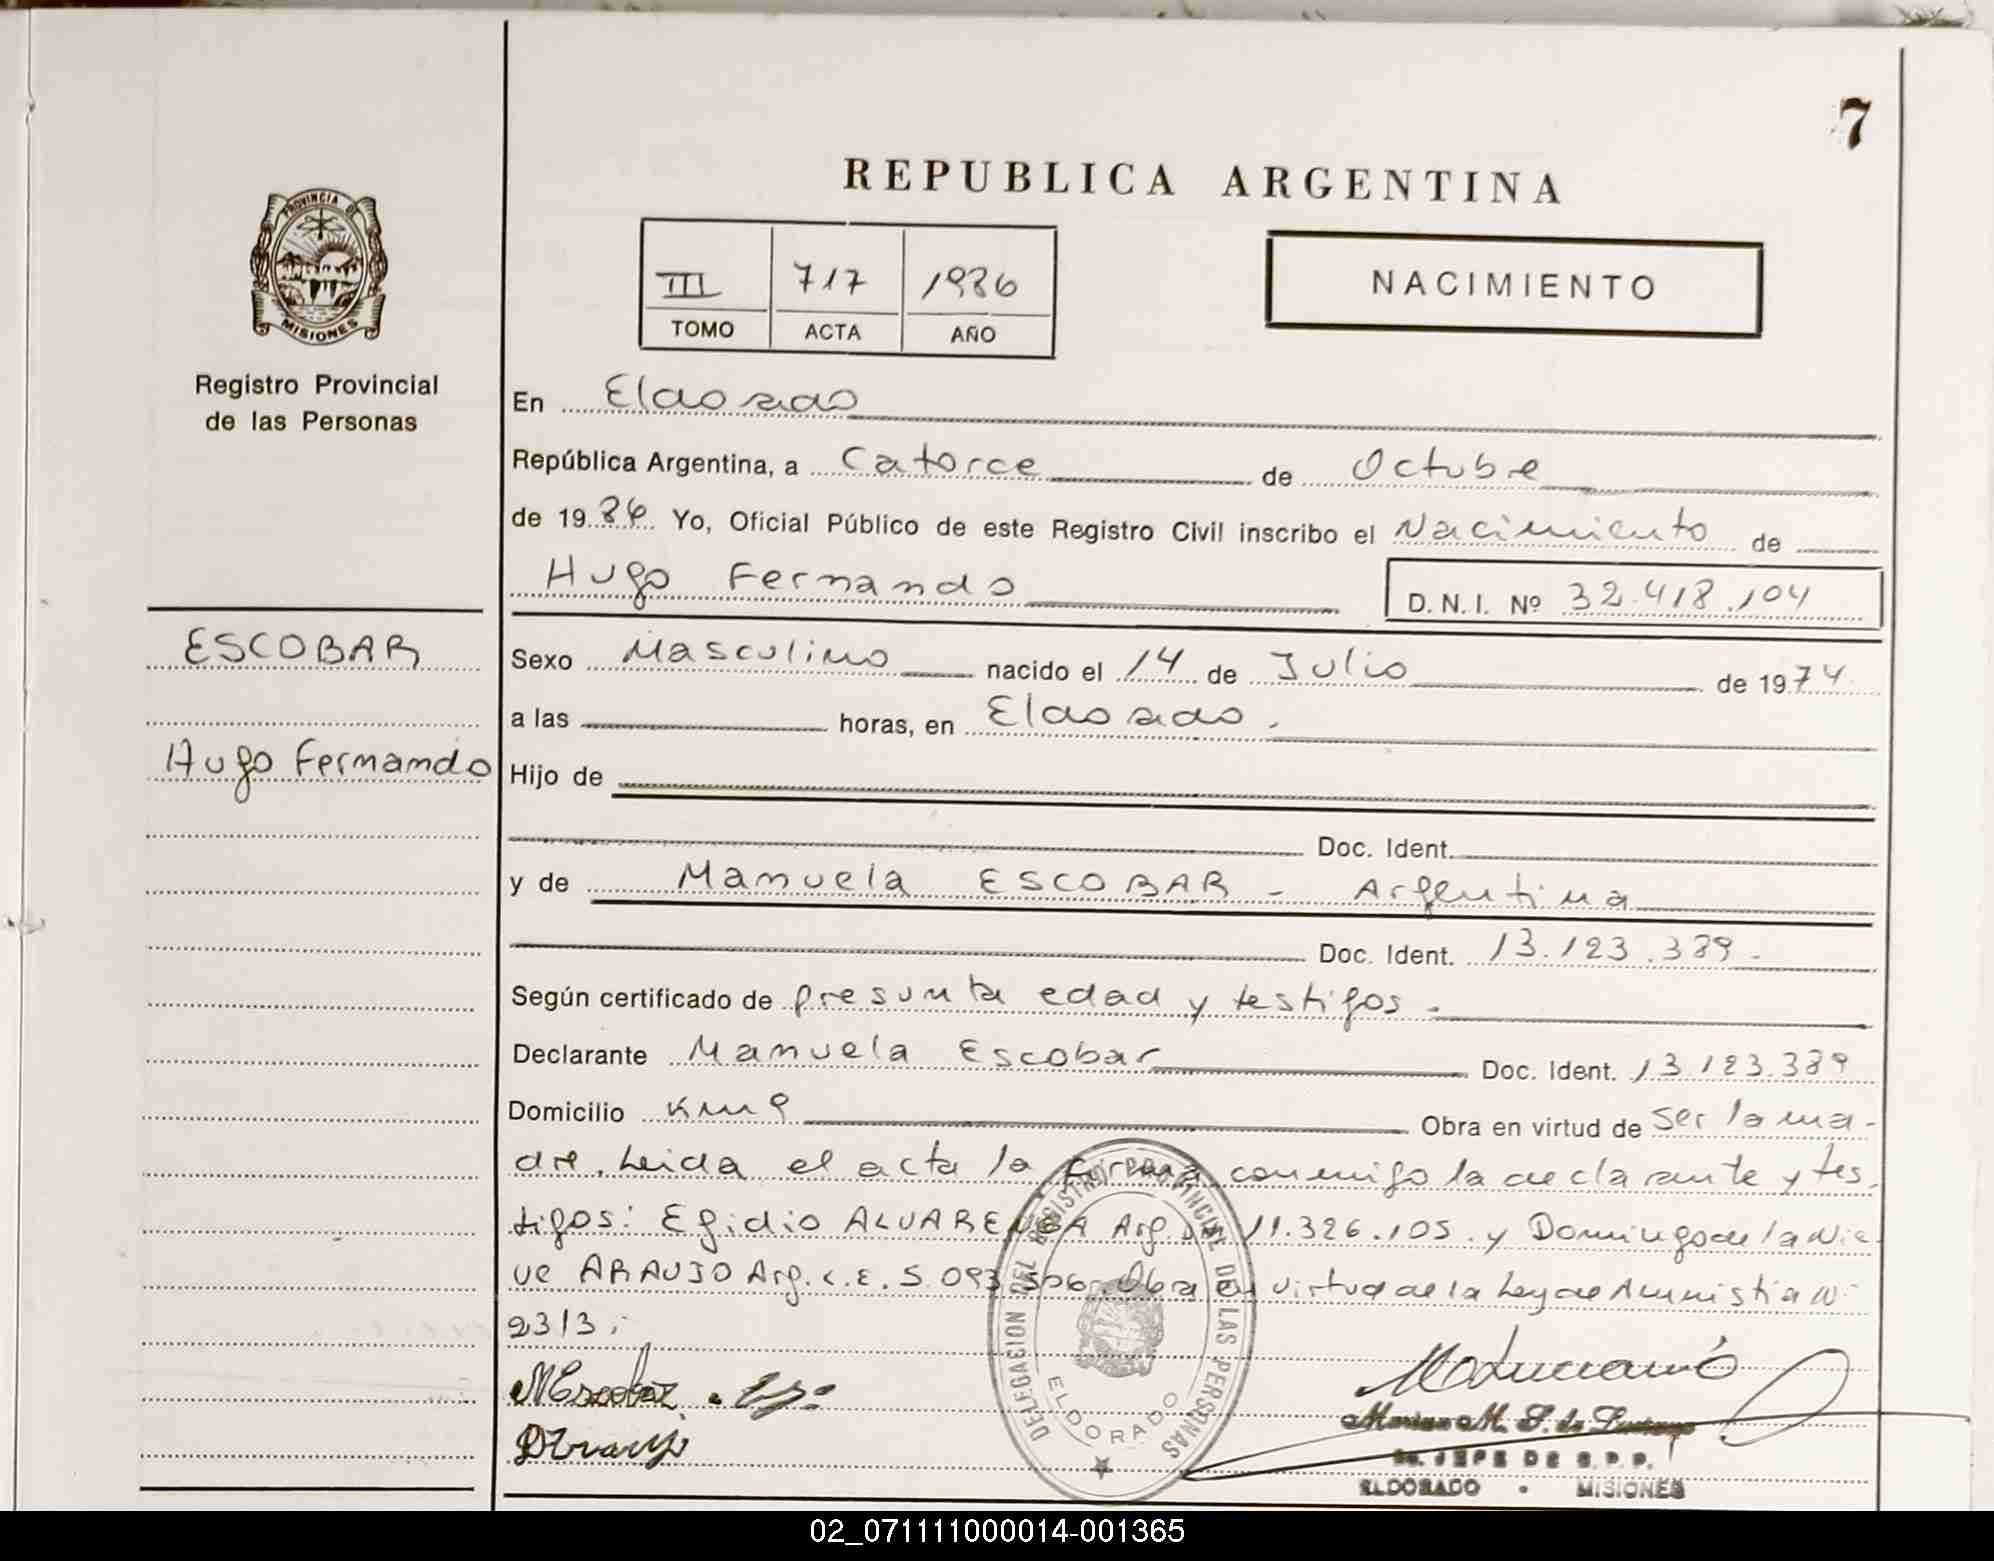 7
REPUBLICA ARGENTINA
PROVINCIA DE
MISIONES
III 717 1986
TOMO ACTA AÑO
NACIMIENTO
Registro Provincial
de las Personas
En Eldorado
República Argentina, a Catorce de Octubre
de 19 86 Yo, Oficial Público de este Registro Civil inscribo el Nacimiento de
Hugo Fernando
D. N. I. Nº 32.418.104
ESCOBAR
Hugo Fernando
Sexo Masculino nacido el 14 de Julio de 19 74
a las horas, en Eldorado.
Hijo de
Doc. Ident.
y de Manuela ESCOBAR - Argentina
Doc. Ident. 13.123.389.-
Según certificado de presunta edad y testigos.-
Declarante Manuela Escobar Doc. Ident. 13.123.389
Domicilio Km 9 Obra en virtud de ser la ma-
dre. Leida el acta la firma conmigo la declarante y tes-
tigos: Egidio ALVARENGA Arg. 11.326.105. y Domingo de la Nie-
ve ARAUJO Arg. C.E. 5.093.506. Obra en virtud de la Ley de Amnistia Nº
2313.-
MEscobar
DAraujo
DELEGACION DEL REGISTRO PROVINCIAL DE LAS PERSONAS
ELDORADO
M. S. de Luciano
JEFE DE S.P.P.
ELDORADO - MISIONES
02_071111000014-001365